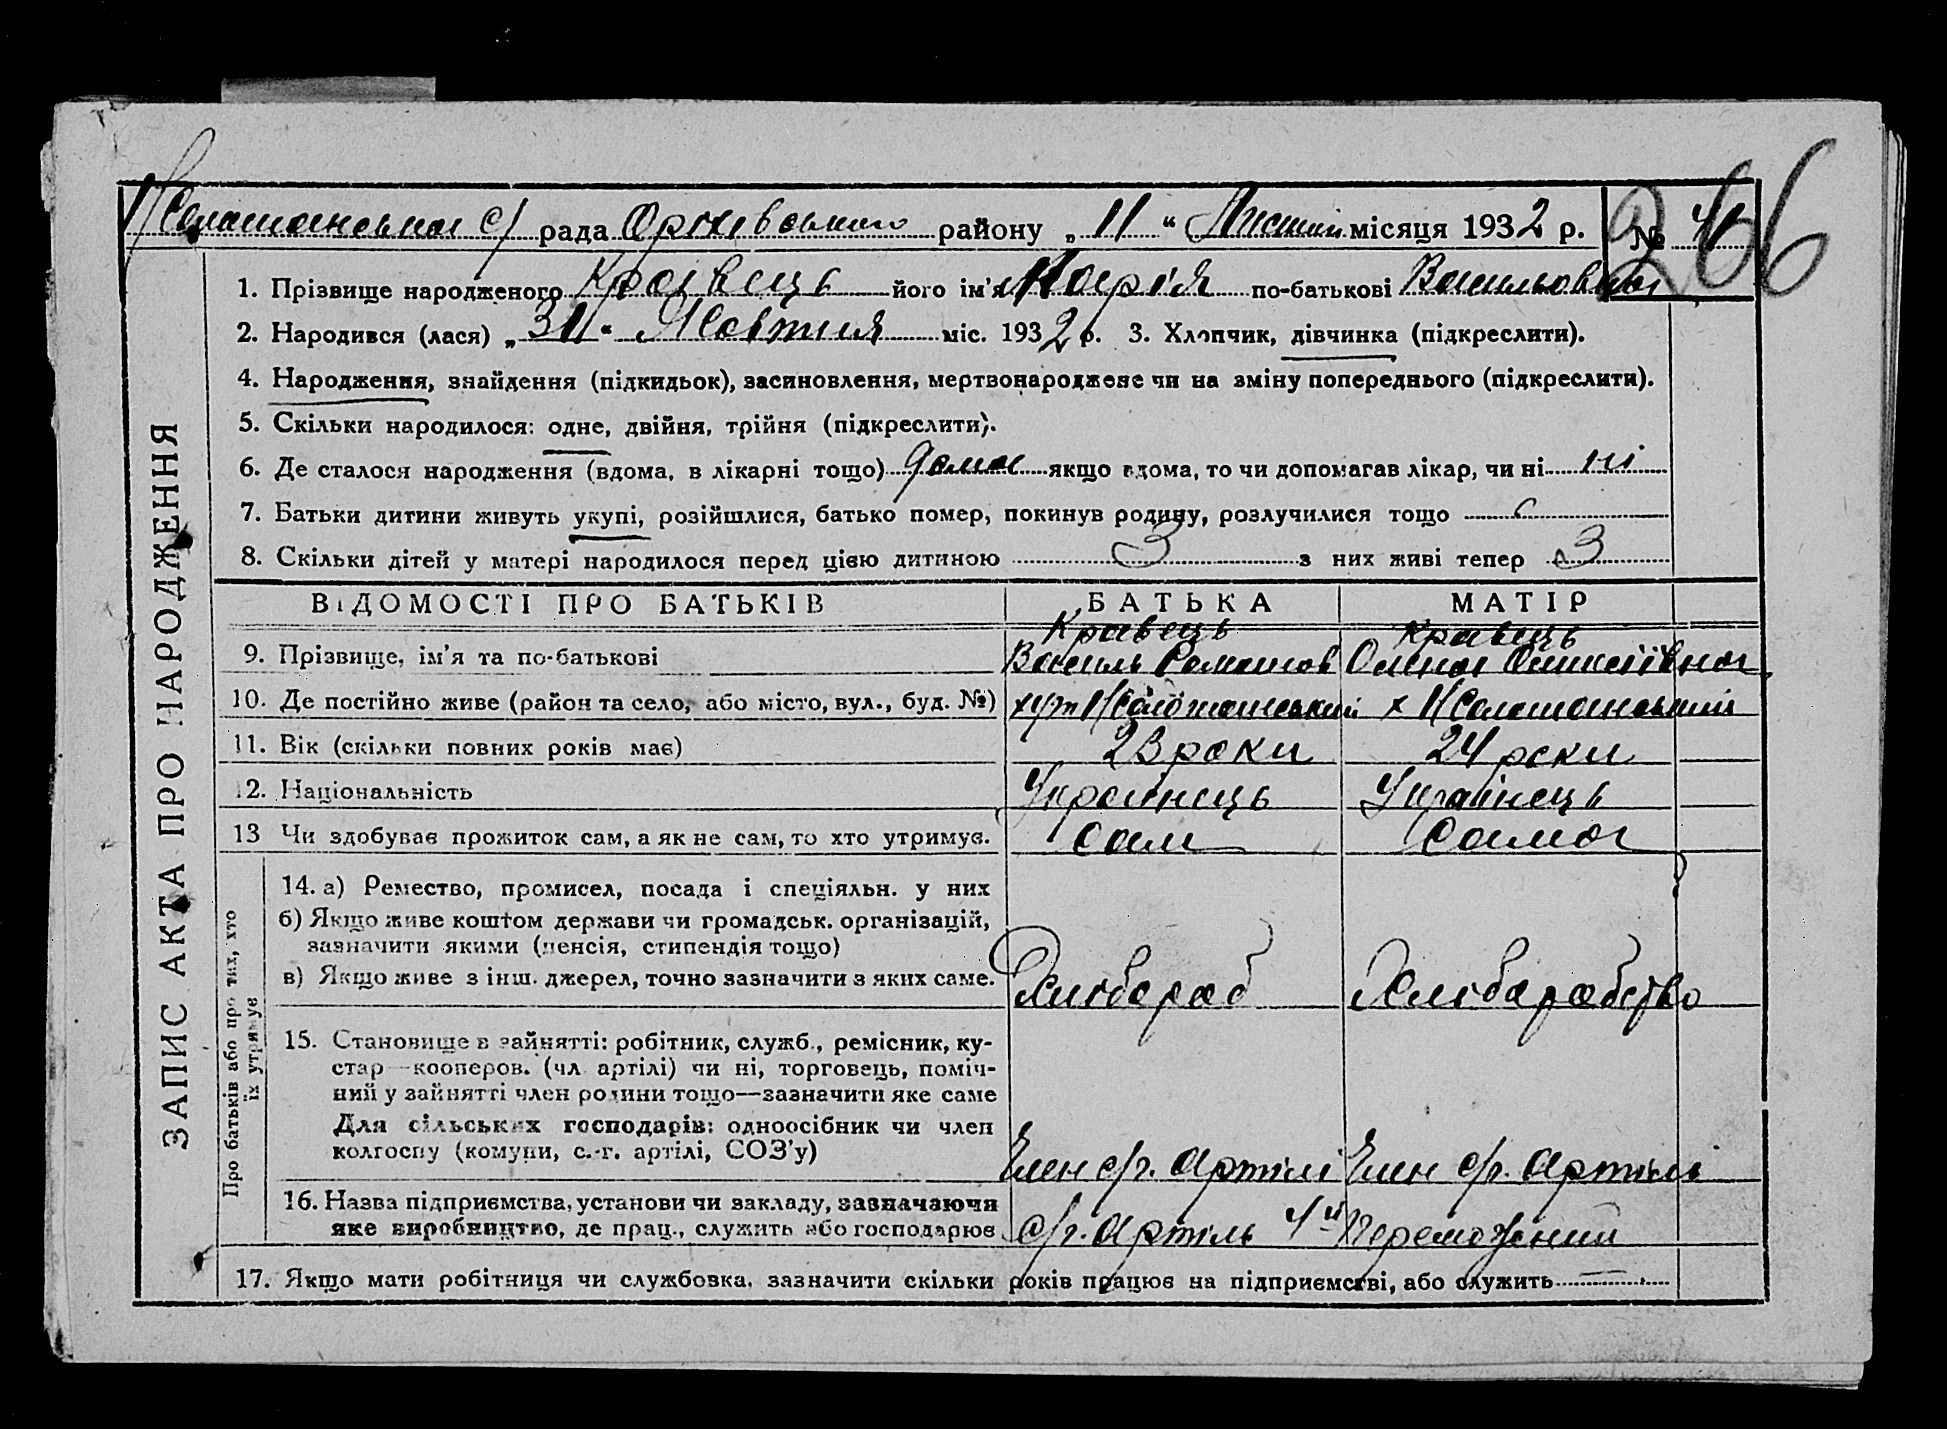 с/ рада Оріхівського району „ 11 “ місяця 1932 р. № 41
266
1. Прізвище народженого Кравець його ім'я Марія по-батькові Васильовна
2. Народився (лася) „ 31 “ Жовтня міс. 1932 р. 3. Хлопчик, дівчинка (підкреслити).
4. Народження, знайдення (підкидьок), засиновлення, мертвонароджене чи на зміну попереднього (підкреслити).
5. Скільки народилося: одне, двійня, трійня (підкреслити).
6. Де сталося народження (вдома, в лікарні тощо) дома якщо вдома, то чи допомагав лікар, чи ні ні
7. Батьки дитини живуть укупі, розійшлися, батько помер, покинув родину, розлучилися тощо
8. Скільки дітей у матері народилося перед цією дитиною 3 з них живі тепер 3
ВІДОМОСТІ ПРО БАТЬКІВ БАТЬКА МАТІР
Кравець Кравець
9. Прізвище, ім'я та по-батькові Василь Романов Олена
10. Де постійно живе (район та село, або місто, вул., буд. №) хут х
11. Вік (скільки повних років має) 23 роки 24 роки
12. Національність Українець Українець
13 Чи здобуває прожиток сам, а як не сам, то хто утримує. Сам Сама
ЗАПИС АКТА ПРО НАРОДЖЕННЯ
Про батьків або про тих, хто
їх утримує
14. а) Ремество, промисел, посада і спеціяльн. у них
б) Якщо живе коштом держави чи громадськ. організацій,
зазначити якими (пенсія, стипендія тощо)
в) Якщо живе з інш. джерел, точно зазначити з яких саме. Хлібороб Хліборобство
15. Становище в зайнятті: робітник, служб., ремісник, ку-
стар—кооперов. (чл. артілі) чи ні, торговець, поміч-
ний у зайнятті член родини тощо—зазначити яке саме
Для сільських господарів: одноосібник чи член
колгоспу (комуни, с.-г. артілі, СОЗ'у) Член с/г. Артілі Член с/г. Артілі
16. Назва підприємства, установи чи закладу, зазначаючи
яке виробництво, де прац., служить або господарює с/г. Артіль
17. Якщо мати робітниця чи службовка, зазначити скільки років працює на підприємстві, або служить —